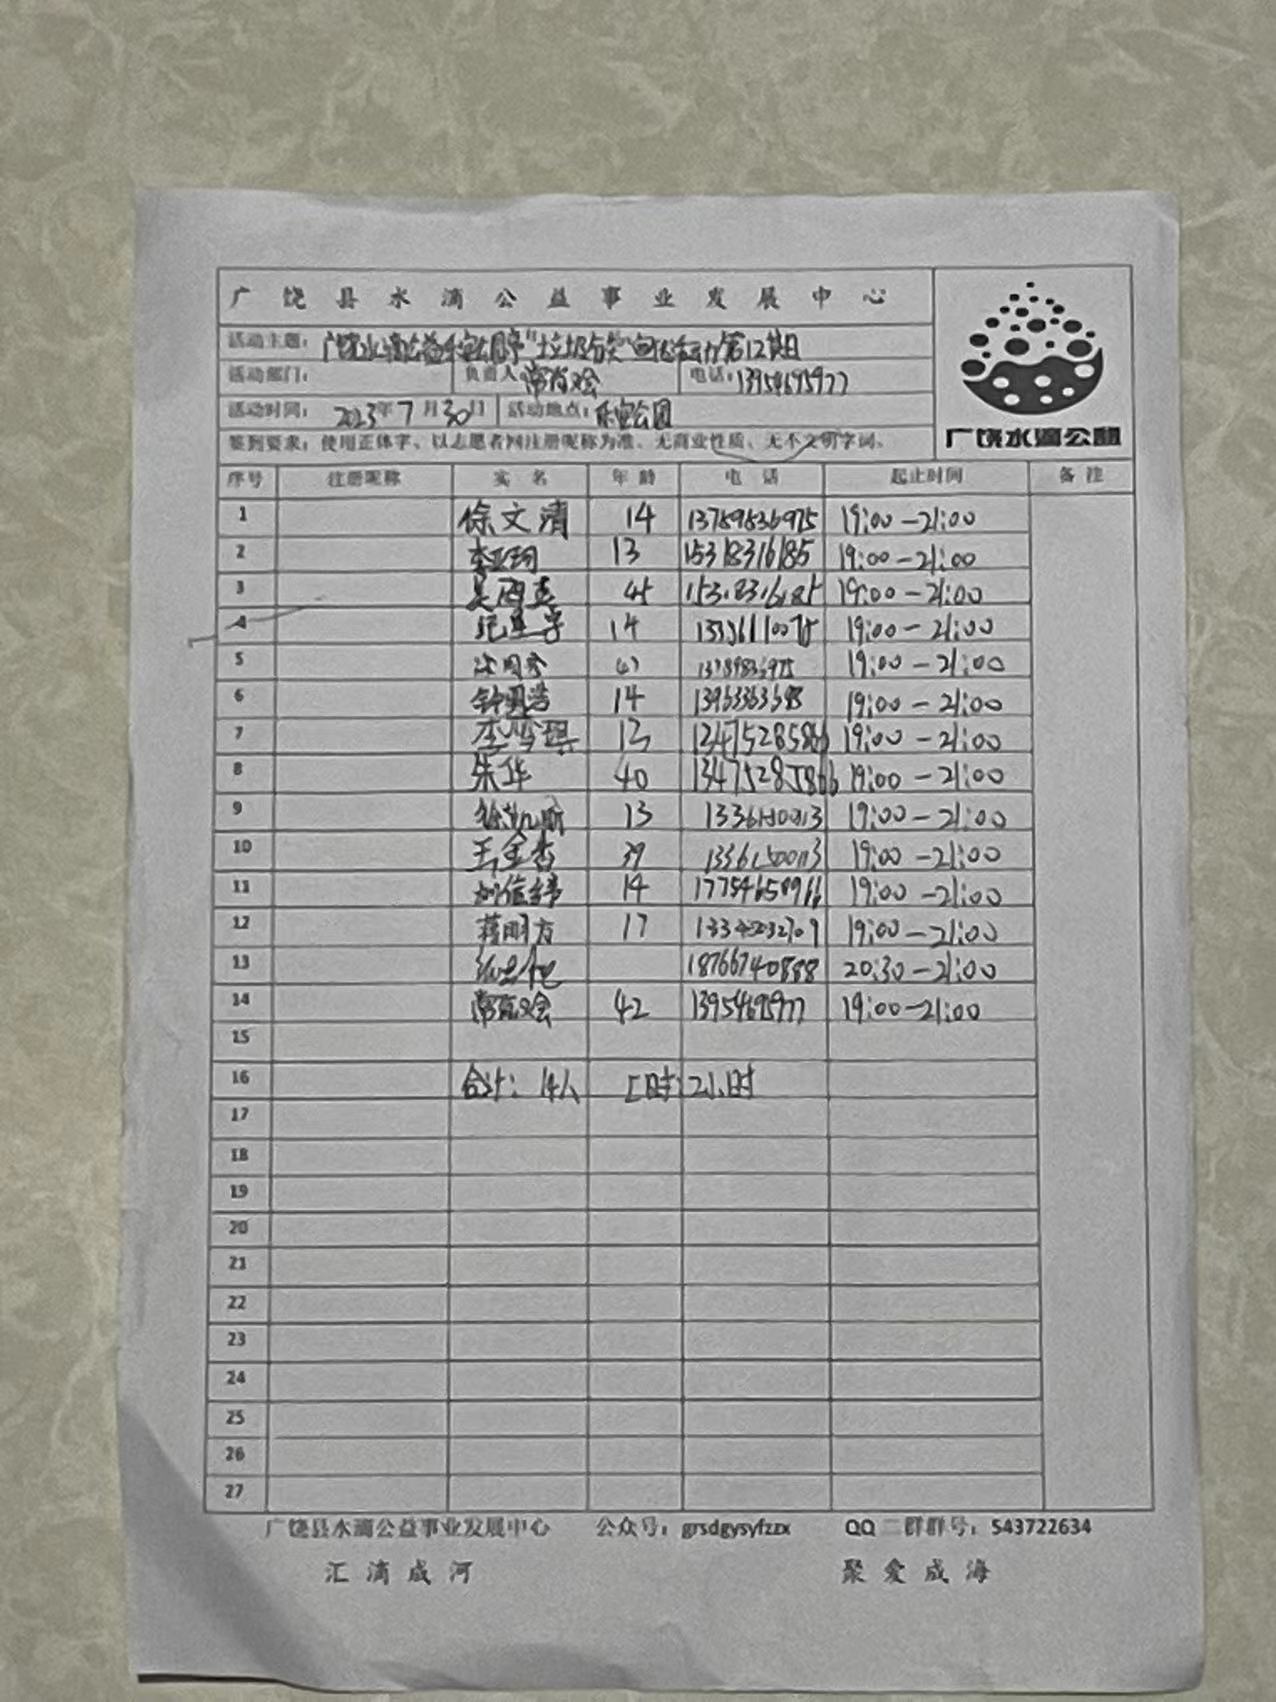 广饶县水滴公益事业发展中心
活动主题：广饶水滴公益乐安公园"垃圾分类"宣传活动第12期
活动部门： 负责人： 电话：13954695977
活动时间：2023年7月30日 活动地点：乐安公园
签到要求：使用正体字、以志愿者网注册昵称为准、无商业性质、无不文明字词。
广饶水滴公益
序号 注册昵称 实名 年龄 电话 起止时间 备注
1 徐文清 14 13789836975 19:00-21:00
2 李亚珂 13 15318316185 19:00-21:00
3 45 15318316185 19:00-21:00
4 14 19:00-21:00
5 13789836975 19:00-21:00
6 14 19:00-21:00
7 李雪琪 13 13475285866 19:00-21:00
8 朱华 40 13475285866 19:00-21:00
9 13 19:00-21:00
10 王金杏 39 19:00-21:00
11 14 17754658966 19:00-21:00
12 蒋明方 17 19:00-21:00
13 18766740888 20:30-21:00
14 42 13954695977 19:00-21:00
15
16 合计：14人 工时 21时
17
18
19
20
21
22
23
24
25
26
27
广饶县水滴公益事业发展中心 公众号：grsdgysyfzzx QQ二群群号：543722634
汇滴成河 聚爱成海